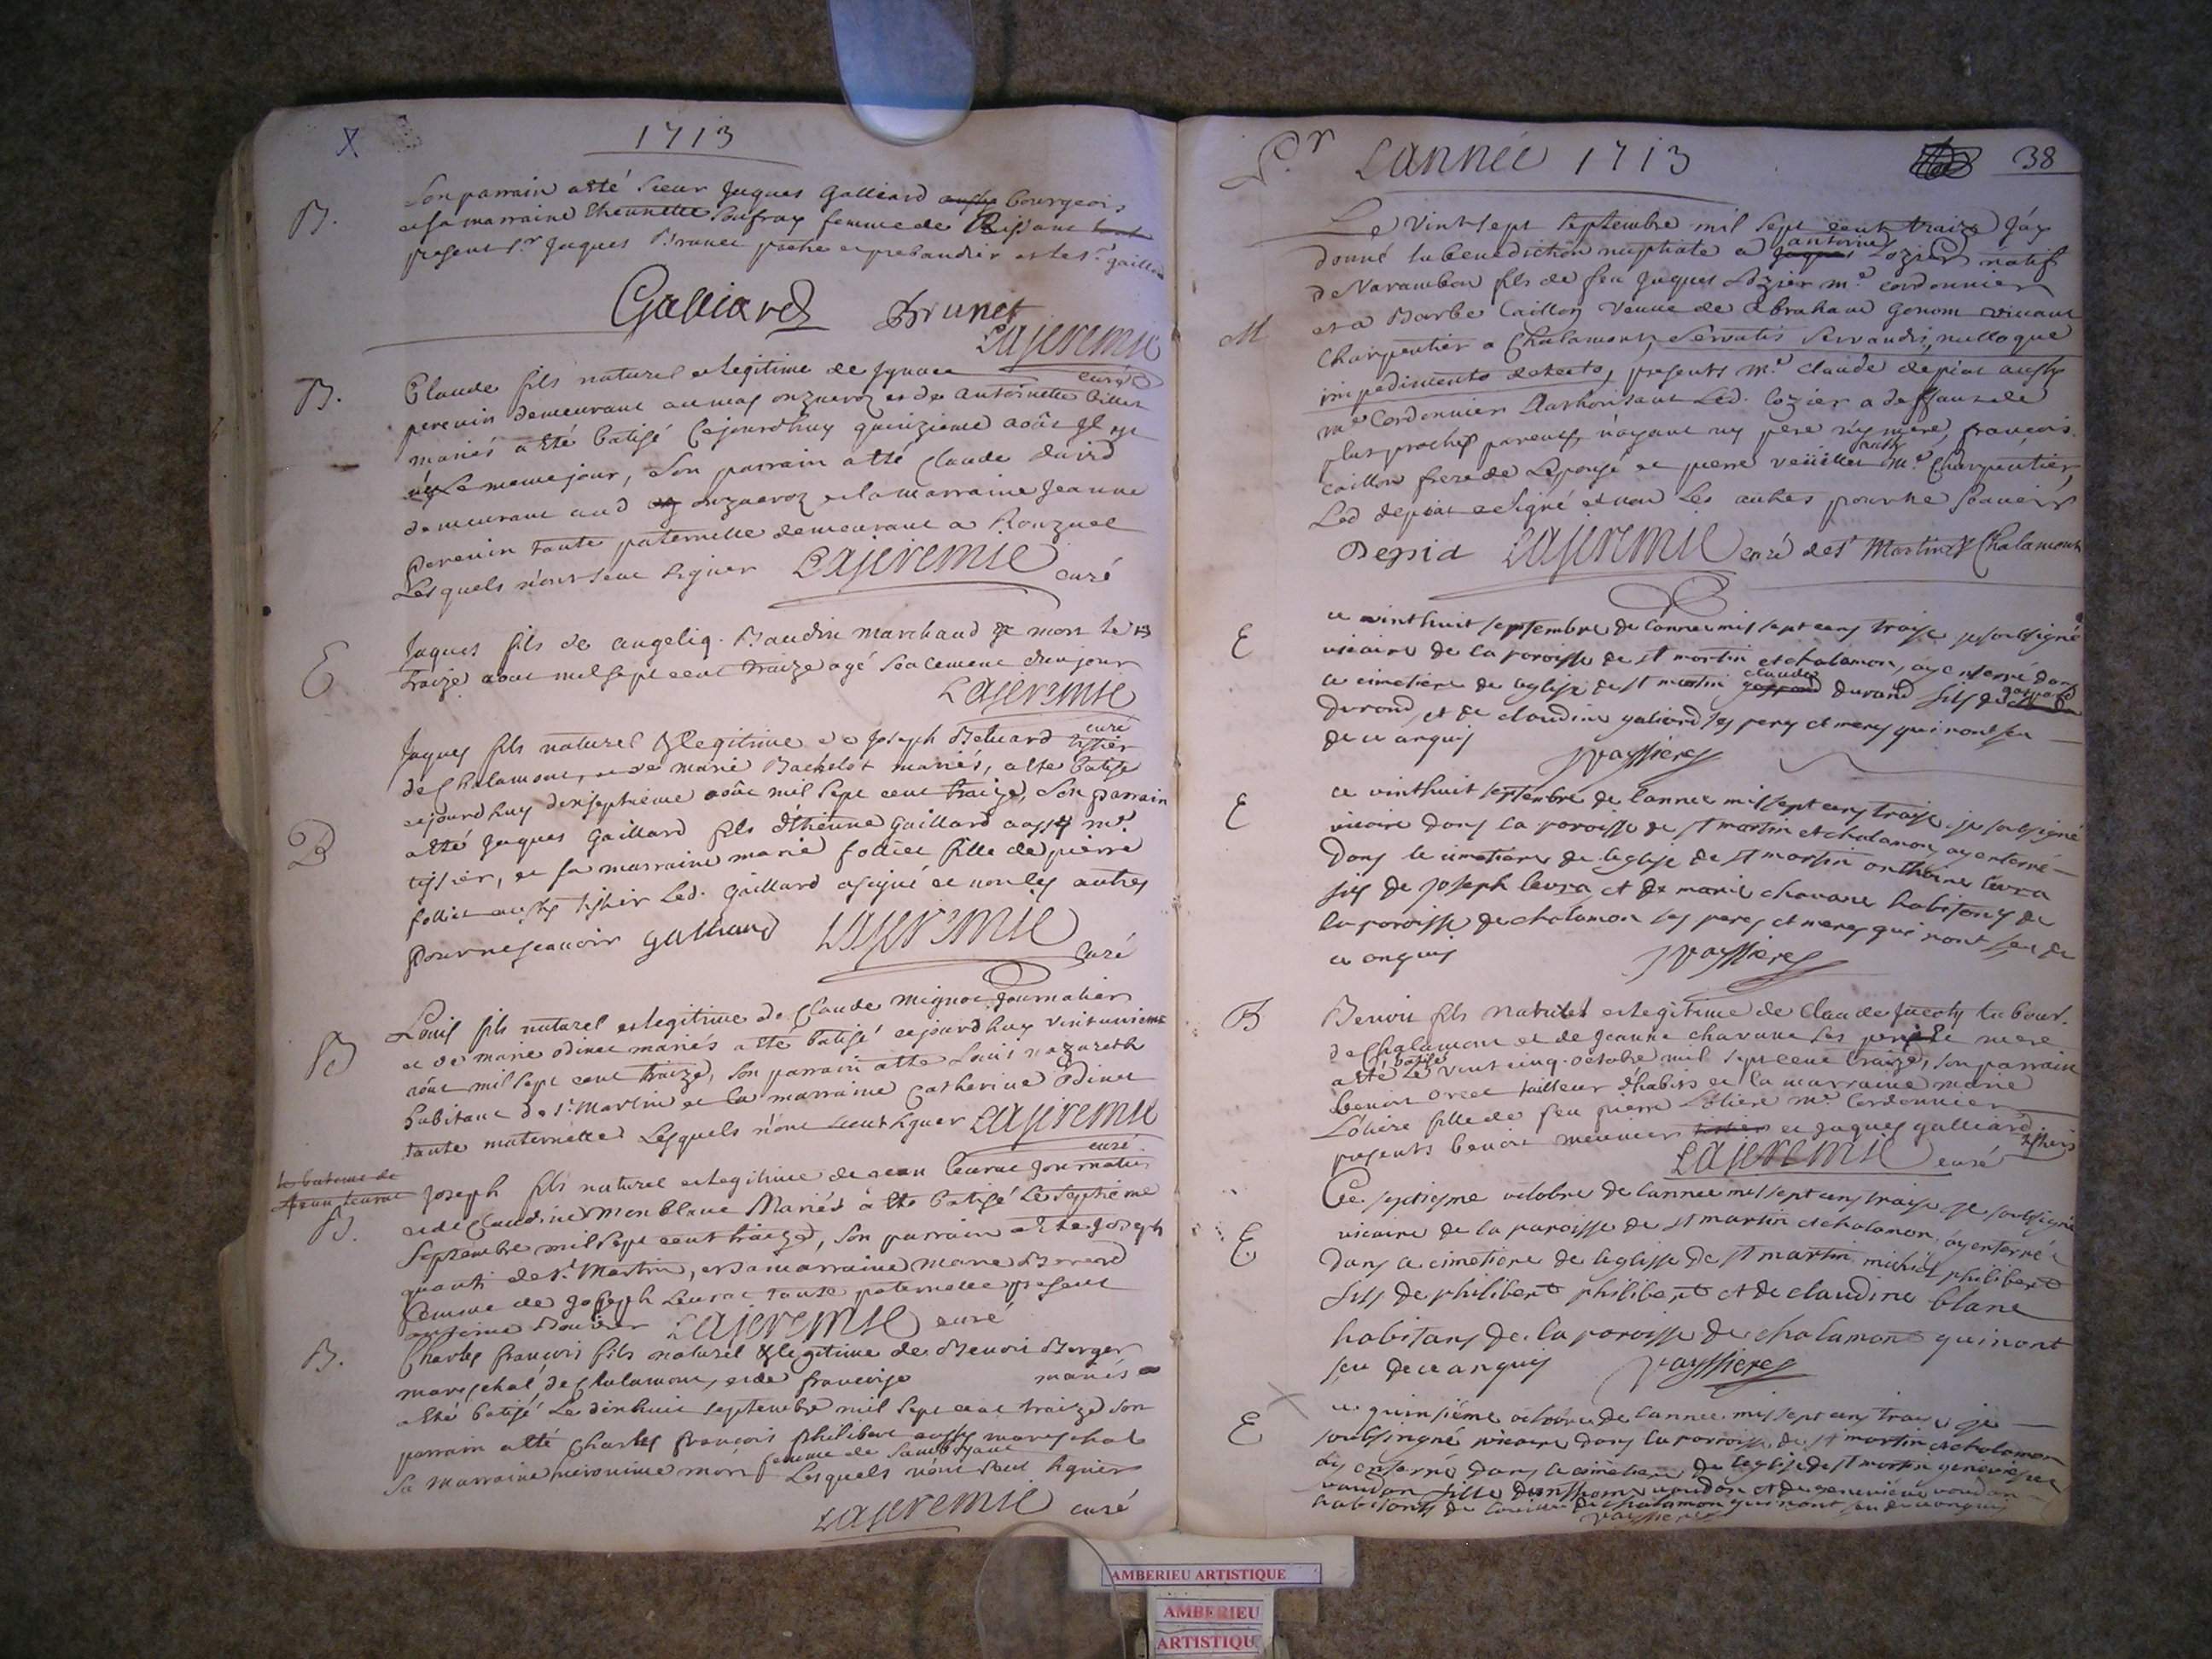 X
1713
B.
Son parrain a èté sieur Jaques Galliard aussy bourgeois
et sa marraine Etheunette femme de
present Sr Jaques Brunet et le Sr gaillard
Galliard Brunet
Lajeremie
curé
B.
Claude fils naturel et legitime de
perenin demeurant au mas onzuevoz et de antoinette billet
mariés a èté batisé cejourdhuy quinzieme août
né le meme jour, son parrain a èté Claude David
demeurant aud onzuevoz et la marraine Jeanne
perenin tante paternelle demeurant a Ronzuel
Lesquels n'ont seut signer Lajeremie curé
E
Jaques fils de angeliq. Baudin marchand mort le
traize aout mil sept cent traize agé sealement d'un jour
Lajeremie
curé
B
Jaques fils naturel & legitime de Joseph Beluard tissier
de Chalamont, et de marie Bachelot mariés, a èté batisé
cejourdhuy dixseptieme août mil sept cent traize, son parrain
a èté Jaques Gaillard fils d'Ethienne Gaillard aussy me.
tissier, et sa marraine marie folliet fille de pierre
folliet aussy tissier Led. Gaillard a signé et non les autres
pour ne scauoir galliard Lajeremie
curé
B
Louis fils naturel et legitime de Claude mignot Journalier
et de marie odinet mariés a èté batisé cejourdhuy vint unieme
aôut mil sept cent traize, son parrain a èté Louis nazareth
habitant de St. Martin et la marraine Catherine Odinet
tante maternelle Lesquels n'ont seut signer Lajeremie
curé
le bateme de
Jean leurat
B.
Joseph fils naturel et legitime de Jean leurat Journalier
et de Claudine monblanc Mariés à èté batisé Le septieme
septembre mil sept cent traize, son parrain a èté Joseph
de St. Martin, et sa marraine marie Berrard
femme de Joseph Leurat tante paternelle present
antoine Bouvier Lajeremie curé
B.
Charles françois fils naturel & legitime de Benoit Berger
mareschal de Chalamont, et de françoise mariés
a èté batisé Le dixhuit septembre mil sept cent traize son
parrain a èté Charles françois philibert aussy mareschal
femme de
Sa marraine Lesquels n'ont seut signer
Lajeremie curé
Pr Lannée 1713
38
Le Vint sept septembre mil sept cent traize J'ay
antoine
donné la benediction nuptiale a Jaques Lozier natif
de Varambon fils de feu Jaques Lozier me. cordonnier
M
et a Barbe Caillon veuue de Abraham Gonom viuant
Charpentier a Chalamont, Servatis Servandis, nulloque
impedimento detecto, presents me. Claude depiat aussy
me Cordonnier Authorisant Led. Lozier a deffaut de
plus proches parents, n'ayant ny pere ny mere, françois
caillon frere de L'epousé et pierre veüillet aussy me. Charpentier,
Led depiat a signé et non Les autres pour ne sçauoir
Depia Lajeremie curé de St Martin & Chalamont
E
ce vinthuit septembre de lannee mil sept cens traise je soubsigné
vicaire de la paroisse de st martin et chalamon, ay enterré dans
claude
le cimetiere de leglise de st martin durand fils de gaspard
durand, et de claudine galiard ses pere et mere qui nont seu
de ce anquis
Vayssieres
E
ce vinthuit septembre de lannee mil sept cens traise je soubsigné
vicaire dans la paroisse de st martin et chalamon ay enterré
dans le cimetiere de leglise de st martin anthoine levra
fils de joseph levra et de marie chavane habitans de
la paroisse de chalamon ses peres et meres qui nont seu de
ce anquis Vayssieres
B
Benoit fils naturel et legitime de Claude Labour.
de Chalamont et de Jeanne chavanne ses pere et mere
batisé
a èté Le vint cinq octobre mil sept cent traize, son parrain
benoit tailleur d'habits et la marraine marie
Lôliere fille de feu pierre Lôliere me. Cordonnier
presents benoit meunier et Jaques galliard tissiers
Lajeremie curé
E
Ce septiesme octobre de lannee mil sept cens traise je soubsigné
vicaire de la paroisse de st martin et chalamon, ay enterré
dans le cimetiere de leglisse de st martin michel philibert
fils de philibert philibert et de claudine blanc
habitans de la paroisse de chalamon qui nont
seu de ce anquis Vayssieres
E
ce quinsiéme octobre de lannee mil sept cens traise je
soubsingné vicaire dans la paroisse de st martin et chalamon
ay enterré dans le cimetiere de leglise de st martin genevieve
vaudan fille vaudan et de genevieve vaudan
habitants de chalamon qui nont seu de ce anquis
Vayssieres
AMBERIEU ARTISTIQUE
AMBERIEU
ARTISTIQU